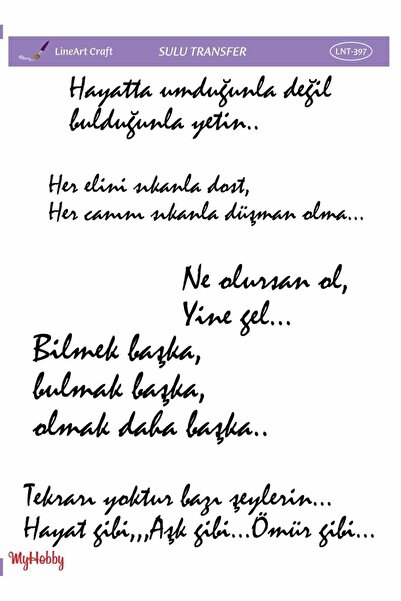 LineArt Craft SULU TRANSFER LNT-397
Hayatta umduğunla değil
bulduğunla yetin..
Her elini sıkanla dost,
Her canını sıkanla düşman olma...
Ne olursan ol,
Yine gel...
Bilmek başka,
bulmak başka,
olmak daha başka..
Tekrarı yoktur bazı şeylerin...
Hayat gibi,,,Aşk gibi...Ömür gibi...
MyHobby